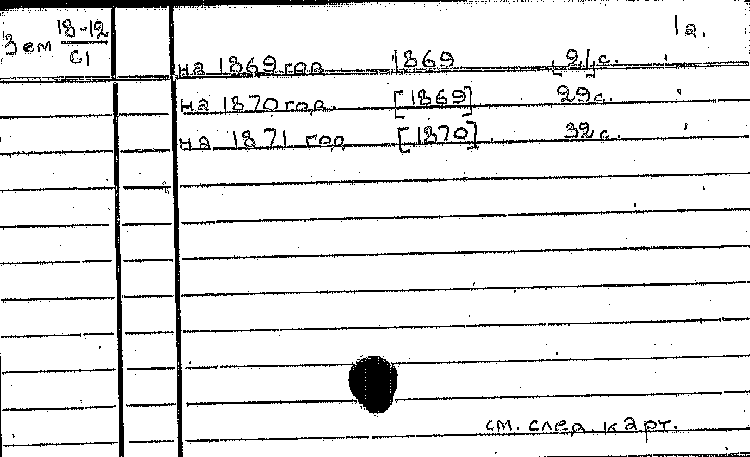 1а.
Зем 18-12
С1
на 1869 год 1869 [2] с.
на 1870 год. [1869] 29с.
на 1871 год [1870]. 32с.
см. след. карт.